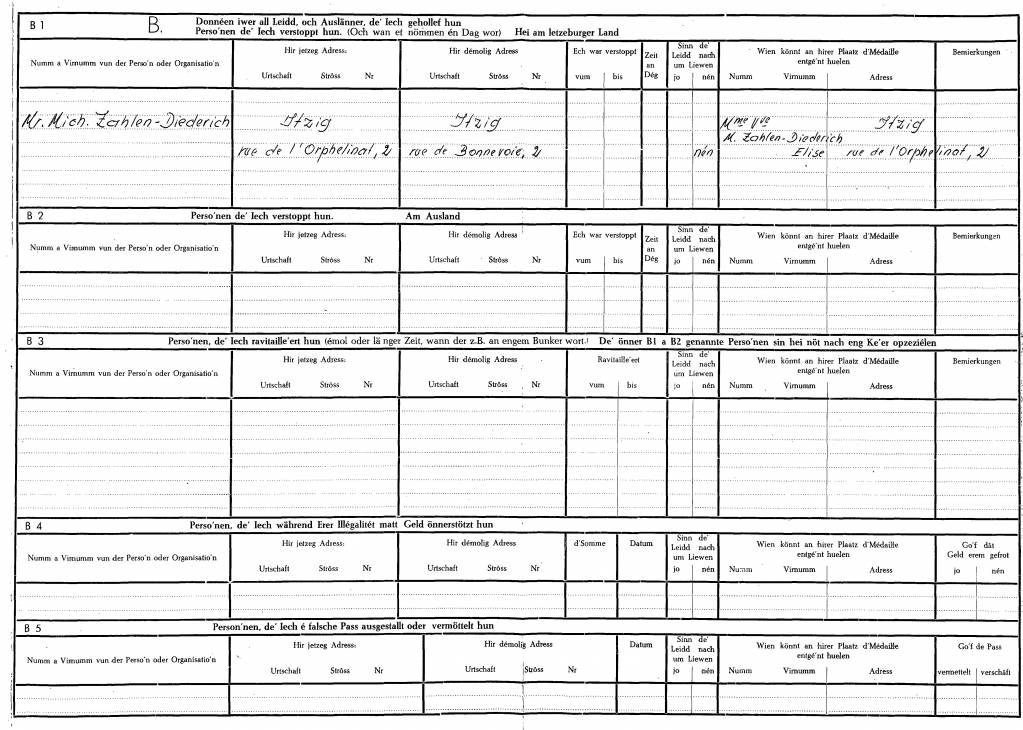 B 1
B.
Donnéen iwer all Leidd, och Auslänner, de' Iech gehollef hun
Perso'nen de' Iech verstoppt hun. (Och wan et nömmen én Dag wor) Hei am letzeburger Land
Numm a Virnumm vun der Perso'n oder Organisatio'n
Hir jetzeg Adress:
Urtschaft Ströss Nr
Hir démolig Adress
Urtschaft Ströss Nr
Ech war verstoppt
vum bis
Zeit
an
Dég
Sinn de'
Leidd nach
um Liewen
jo nén
Wien könnt an hirer Plaatz d'Médaille
entgé'nt huelen
Numm Virnumm Adress
Bemierkungen
Mr. Mich. Zahlen-Diederich Itzig Itzig Mme Vve Itzig
M. Zahlen-Diederich
rue de l'Orphelinat, 2 rue de Bonnevoie, 2 nén Elise rue de l'Orphelinat, 2
B 2
Perso'nen de' Iech verstoppt hun. Am Ausland
Numm a Virnumm vun der Perso'n oder Organisatio'n
Hir jetzeg Adress:
Urtschaft Ströss Nr
Hir démolig Adress
Urtschaft Ströss Nr
Ech war verstoppt
vum bis
Zeit
an
Dég
Sinn de'
Leidd nach
um Liewen
jo nén
Wien könnt an hirer Plaatz d'Médaille
entgé'nt huelen
Numm Virnumm Adress
Bemierkungen
B 3
Perso'nen, de' Iech ravitaille'ert hun (émol oder länger Zeit, wann der z.B. an engem Bunker wort.) De' önner B1 a B2 genannte Perso'nen sin hei nöt nach eng Ke'er opzeziélen
Numm a Virnumm vun der Perso'n oder Organisatio'n
Hir jetzeg Adress:
Urtschaft Ströss Nr
Hir démolig Adress
Urtschaft Ströss Nr
Ravitaille'ert
vum bis
Sinn de'
Leidd nach
um Liewen
jo nén
Wien könnt an hirer Plaatz d'Médaille
entgé'nt huelen
Numm Virnumm Adress
Bemierkungen
B 4
Perso'nen, de' Iech während Erer Illégalitét matt Geld önnerstötzt hun
Numm a Virnumm vun der Perso'n oder Organisatio'n
Hir jetzeg Adress:
Urtschaft Ströss Nr
Hir démolig Adress
Urtschaft Ströss Nr
d'Somme
Datum
Sinn de'
Leidd nach
um Liewen
jo nén
Wien könnt an hirer Plaatz d'Médaille
entgé'nt huelen
Numm Virnumm Adress
Go'f dât
Geld erem gefrot
jo nén
B 5
Person'nen, de' Iech é falsche Pass ausgestallt oder vermöttelt hun
Numm a Virnumm vun der Perso'n oder Organisatio'n
Hir jetzeg Adress:
Urtschaft Ströss Nr
Hir démolig Adress
Urtschaft Ströss Nr
Datum
Sinn de'
Leidd nach
um Liewen
jo nén
Wien könnt an hirer Plaatz d'Médaille
entgé'nt huelen
Numm Virnumm Adress
Go'f de Pass
vermettelt verschâft